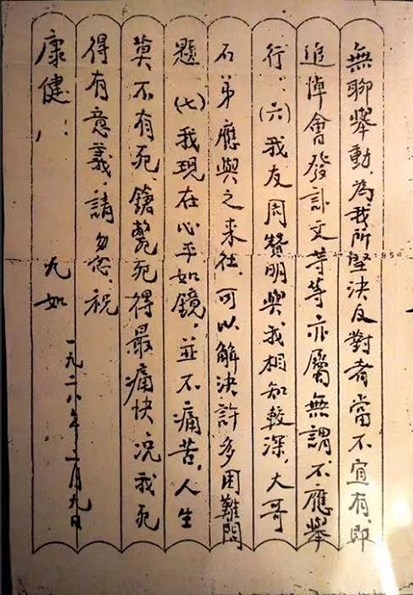 無聊舉動，為我所堅決反對者，當不宜有，即
追悼會發訃文等等亦屬無謂，不應舉
行：（六）我友周贊明與我相知較深，大哥
石弟應與之來往，可以解決許多困難問
題（七）我現在心平如鏡，並不痛苦，人生
莫不有死，鎗斃死得最痛快，況我死
得有意義，請勿念，祝
康健！
九如
一九二八年二月九日